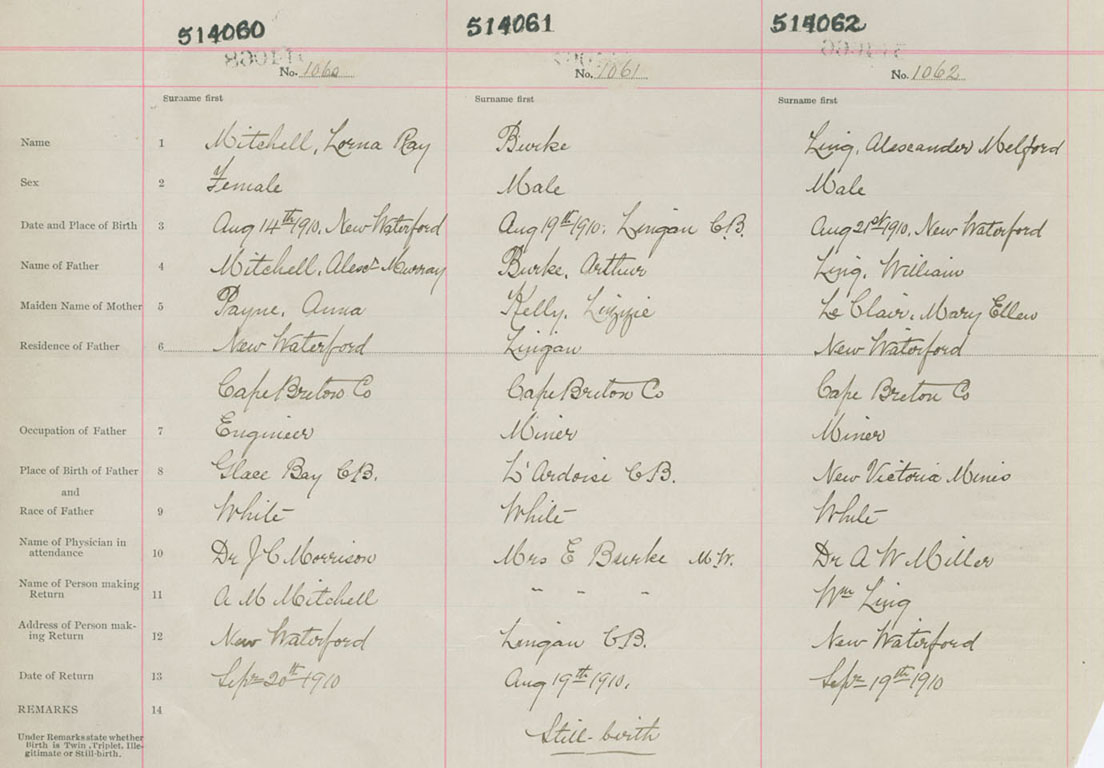 514060 514061 514062
No. 1060 No. 1061 No. 1062
Surname first Surname first Surname first
Name 1 Mitchell, Lorna Ray Burke Ling, Alexander Melford
Sex 2 Female Male Male
Date and Place of Birth 3 Aug 14th 1910. New Waterford Aug 19th 1910. Lingan C.B. Aug 21st 1910. New Waterford
Name of Father 4 Mitchell, Alexr Murray Burke, Arthur Ling, William
Maiden Name of Mother 5 Payne, Anna Kelly, Lizzie Le Clair, Mary Ellen
Residence of Father 6 New Waterford Lingan New Waterford
Cape Breton Co Cape Breton Co Cape Breton Co
Occupation of Father 7 Engineer Miner Miner
Place of Birth of Father 8 Glace Bay C.B. L'Ardoise C.B. New Victoria Mines
and
Race of Father 9 White White White
Name of Physician in
attendance 10 Dr J C Morrison Mrs E Burke M.W. Dr A W Miller
Name of Person making
Return 11 A M Mitchell " " " Wm Ling
Address of Person mak-
ing Return 12 New Waterford Lingan C.B. New Waterford
Date of Return 13 Sepr 20th 1910 Aug 19th 1910. Sepr 19th 1910
REMARKS 14
Under Remarks state whether
Birth is Twin, Triplet, Ille-
gitimate or Still-birth.
Still-birth